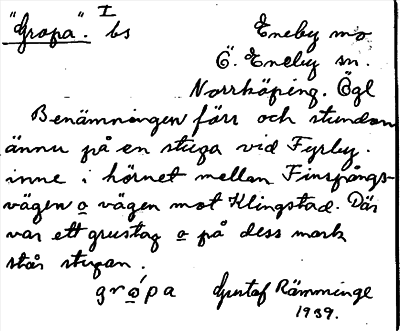 "Gropa". I bs Eneby mo
Ö. Eneby sn.
Norrköping. Ögl
Benämningen förr och stundom
ännu på en stuga vid Fyrby.
inne i hörnet mellan Finspångs-
vägen o vägen mot Klingstad. Där
var ett grustag o på dess mark
står stugan.
grópa Gustaf Rämminge
1939.